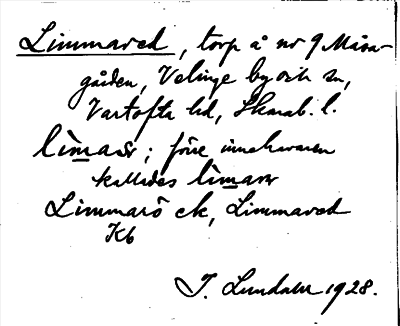 Limmared, torp å nr 9 Måns-
gården, Velinge by och sn,
Vartofta hd, Skarab. l.
; förre innehavaren
kallades
Limmarö ek, Limmared
Kb
J. Lundahl 1928.